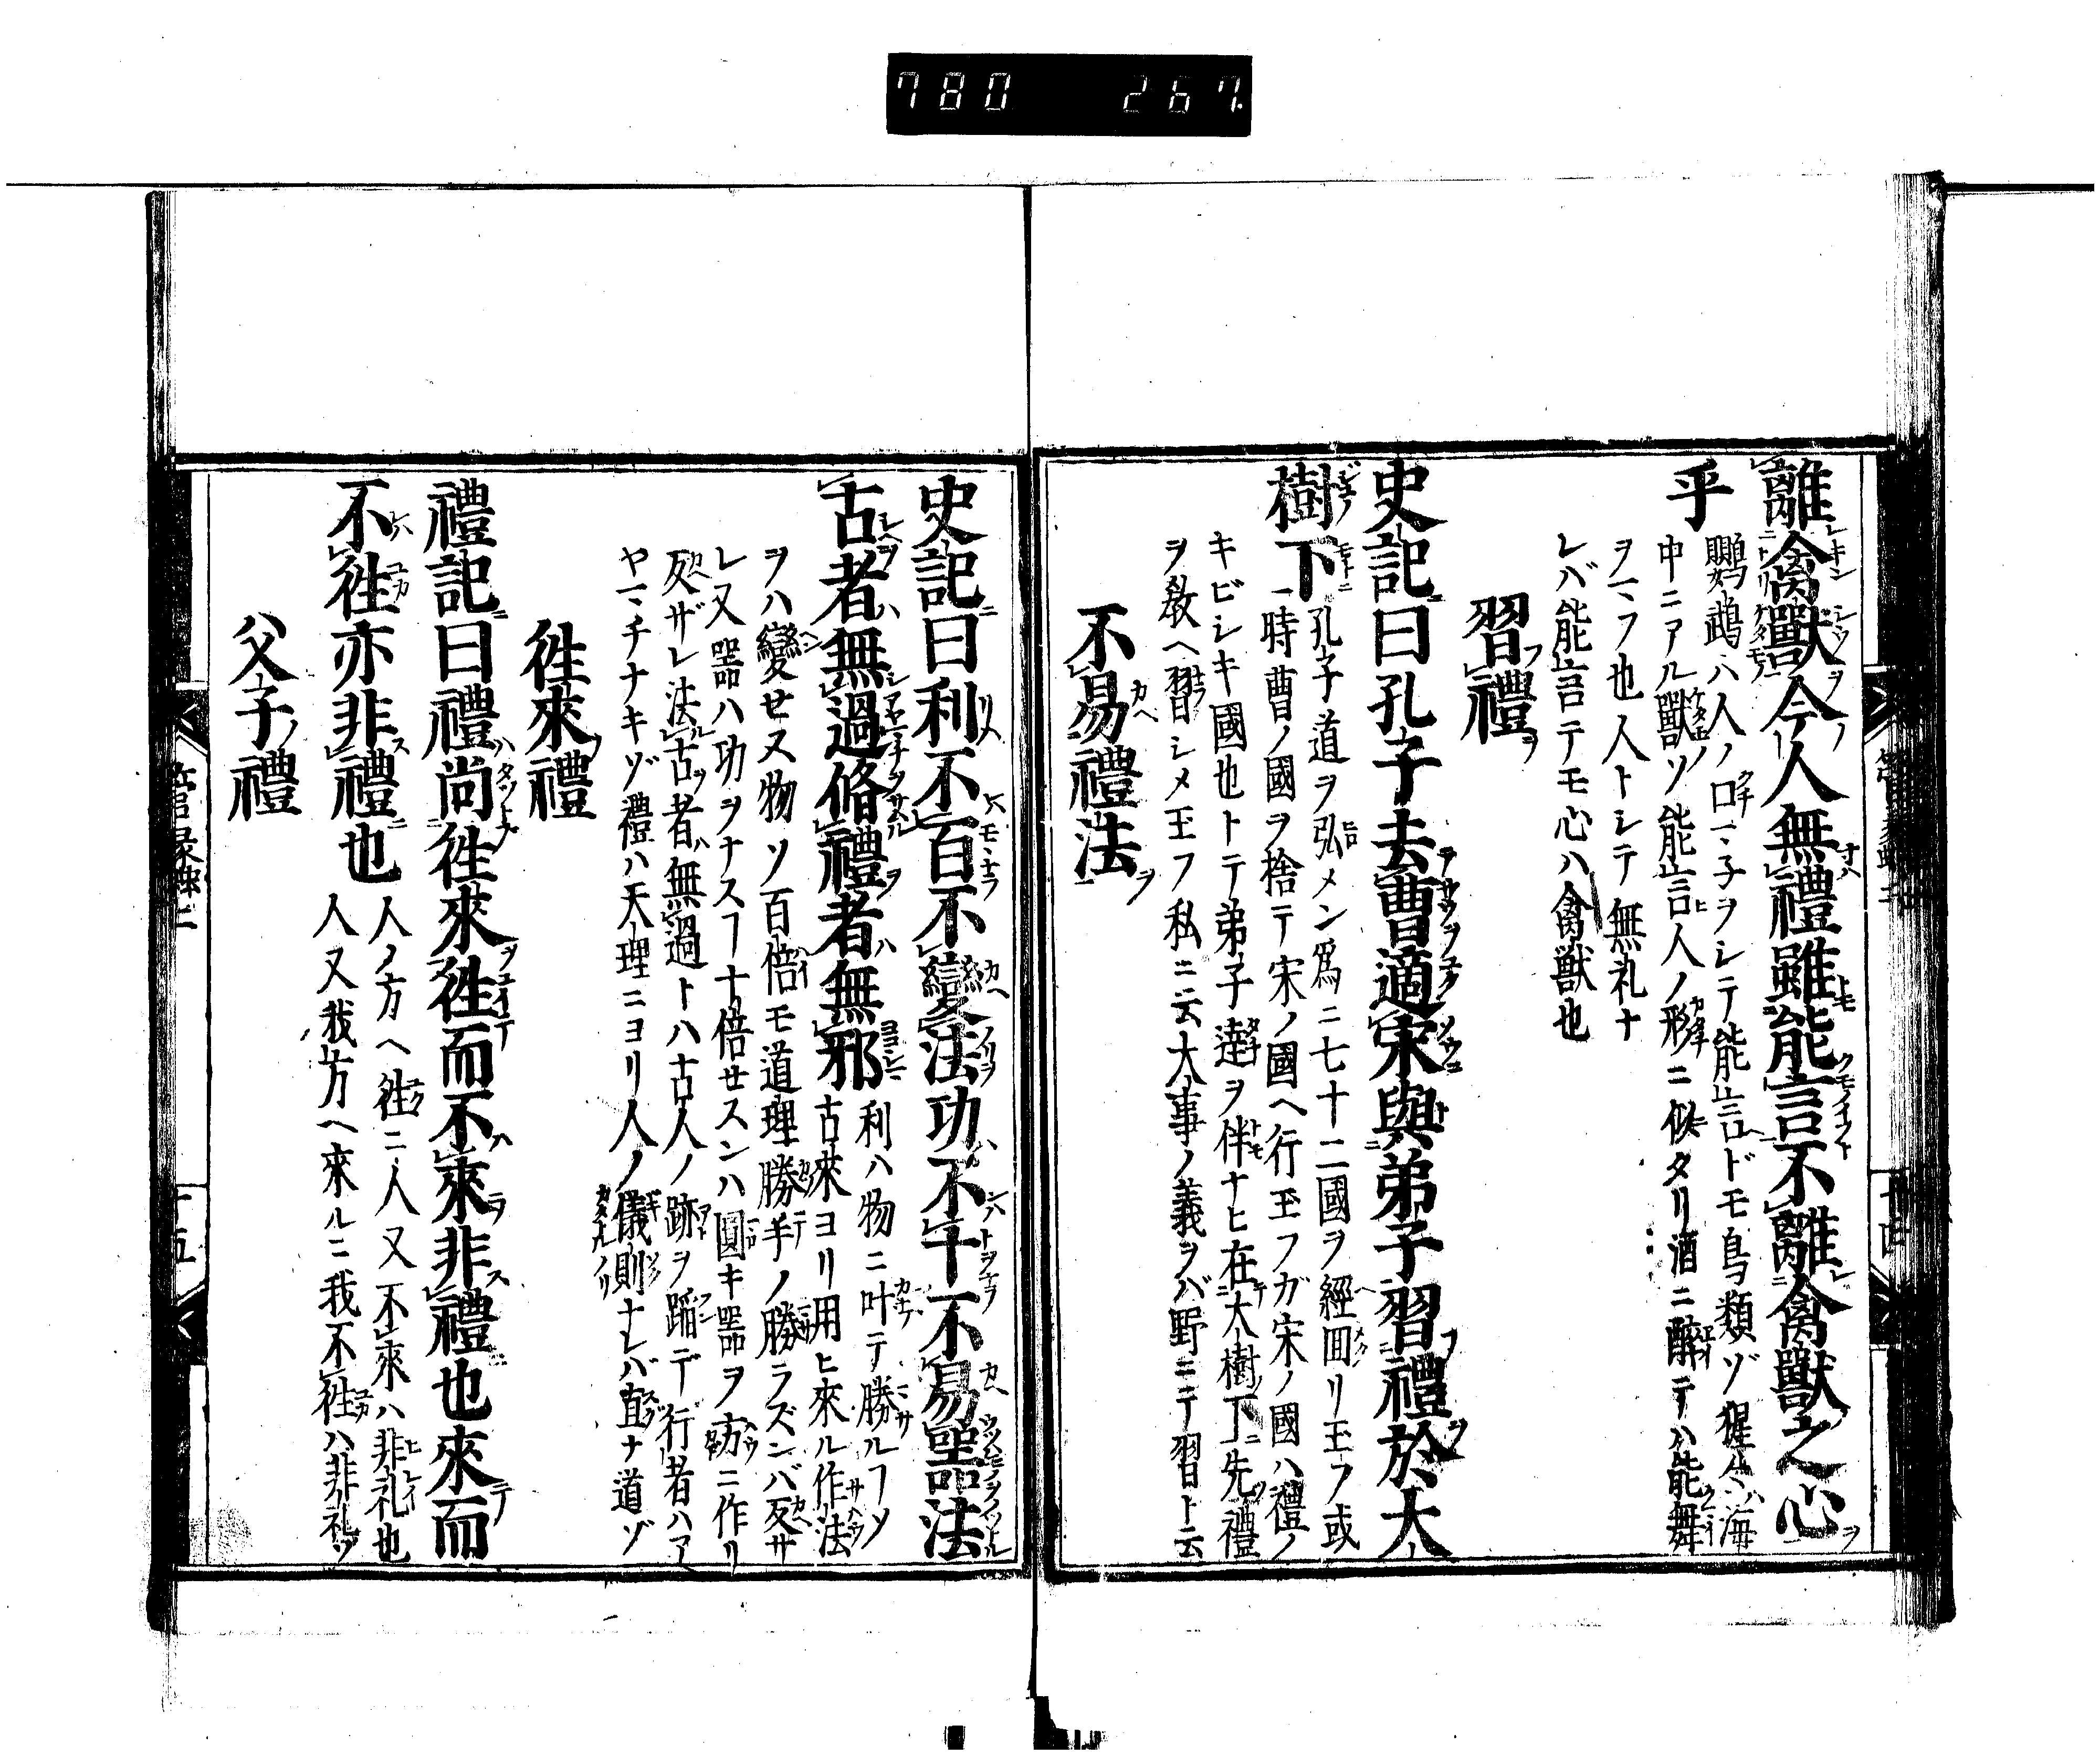 780 267
離禽獸今人無禮雖能言不離禽獸之心
乎
鸚鵡ハ人ノ口マ子ヲシテ能言ヘドモ鳥類ゾ猩々ハ海
中ニアル獸ソ能言人ノ形ニ似タリ酒ニ醉テハ能舞
ヲマフ也人トシテ無礼ナ
レバ能言テモ心ハ禽獣也
習禮
史記曰孔子去曹適宋與弟子習禮於大
樹下
孔子道ヲ弘メン爲ニ七十二國ヲ經囬リ玉フ或
一時曹ノ國ヲ捨テ宋ノ國ヘ行玉フガ宋ノ國ハ禮ノ
キビシキ國也トテ弟子達ヲ伴ナヒ在大樹下先禮
ヲ教ヘ習シメ玉フ私ニ云大事ノ義ヲバ野ニテ習ト云
不易禮法
史記曰利不百不變法功不十不易噐法
古者無過脩禮者無邪
利ハ物ニ叶テ勝ルヿソ
古來ヨリ用ヒ來ル作法
ヲハ變セス物ソ百倍モ道理勝手ノ勝ラズンバ反サ
レ又噐ハ功ヲナスヿ十倍セスンハ圓キ噐ヲ方ニ作リ
反ザレ法古者無過トハ古人ノ跡ヲ蹈デ行者ハア
ヤマチナキゾ禮ハ天理ニヨリ人ノ儀則ナレバ直ナ道ゾ
徃來禮
禮記曰禮尚徃來徃而不來非禮也來而
不徃亦非禮也
人ノ方ヘ徃ニ人又不來ハ非礼也
人又我方ヘ來ルニ我不徃ハ非礼ソ
父子禮
十五